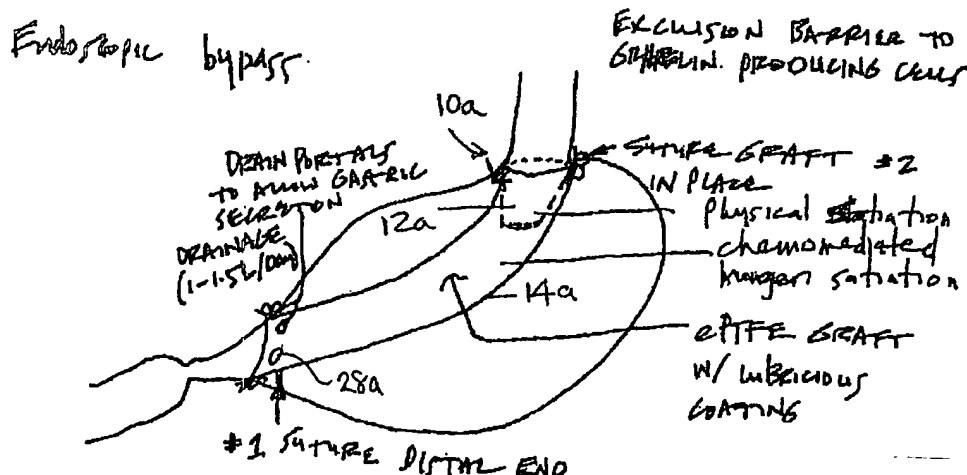 Endoscopic bypass.
EXCLUSION BARRIER TO
GHRELIN. PRODUCING CELLS
10a
DRAIN PORTALS
TO ALLOW GASTRIC
SECRETION
DRAINAGE
(1-1.5L/DAY)
SUTURE GRAFT #2
IN PLACE
12a
physical satiation
chemomediated
hunger satiation
14a
ePTFE GRAFT
W/ LUBRICIOUS
COATING
28a
#1 SUTURE DISTAL END